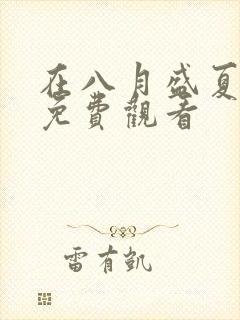 在八月盛夏
免费觀看
雷有凱